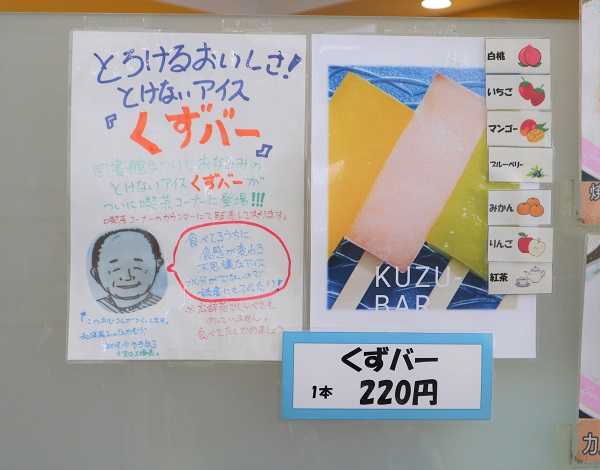 とろけるおいしさ!
とけないアイス
『くずバー』
図書館まつりでおなじみの
とけないアイスくずバーが
ついに喫茶コーナーに登場!!!
喫茶コーナーのカウンターにて販売しております。
食べてるうちに
食感が変わる
不思議なアイス
水分がでないので
読書にもぴったり!
KUZU-
BAR
白桃
いちご
マンゴー
ブルーベリー
みかん
りんご
紅茶
くずバー
1本 220円